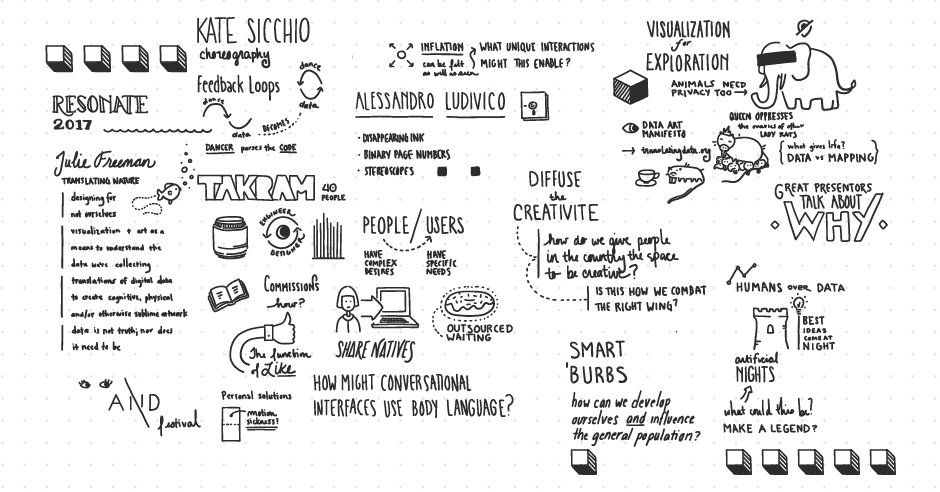 RESONATE
2017
Julie Freeman
TRANSLATING NATURE
designing for
not ourselves
visualization + art as a
means to understand the
data we're collecting
translations of digital data
to create cognitive, physical
and/or otherwise sublime artwork
data is not truth; nor does
it need to be
AND
festival
KATE SICCHIO
choreography
Feedback Loops
dance
data
dance
data
BECOMES
DANCER parses the CODE
TAKRAM 40
PEOPLE
ENGINEER
DESIGNER
COMMISSIONS
how?
The function
of Like
Personal solutions
motion
sickness?
INFLATION
can be felt
as well as seen
WHAT UNIQUE INTERACTIONS
MIGHT THIS ENABLE?
ALESSANDRO LUDIVICO
· DISAPPEARING INK
· BINARY PAGE NUMBERS
· STEREOSCOPES
PEOPLE/USERS
HAVE
COMPLEX
DESIRES
HAVE
SPECIFIC
NEEDS
OUTSOURCED
WAITING
SHARE NATIVES
HOW MIGHT CONVERSATIONAL
INTERFACES USE BODY LANGUAGE?
DIFFUSE
the
CREATIVITE
how do we give people
in the country the space
to be creative?
IS THIS HOW WE COMBAT
THE RIGHT WING?
SMART
'BURBS
how can we develop
ourselves and influence
the general population?
VISUALIZATION
for
EXPLORATION
ANIMALS NEED
PRIVACY TOO →
QUEEN OPPRESSES
the ovaries of other
LADY RATS
DATA ART
MANIFESTO
→ translatingdata.org
{ what gives life?
DATA vs MAPPING }
GREAT PRESENTORS
TALK ABOUT
WHY
HUMANS OVER DATA
BEST
IDEAS
COME AT
NIGHT
artificial
NIGHTS
what could this be?
MAKE A LEGEND?